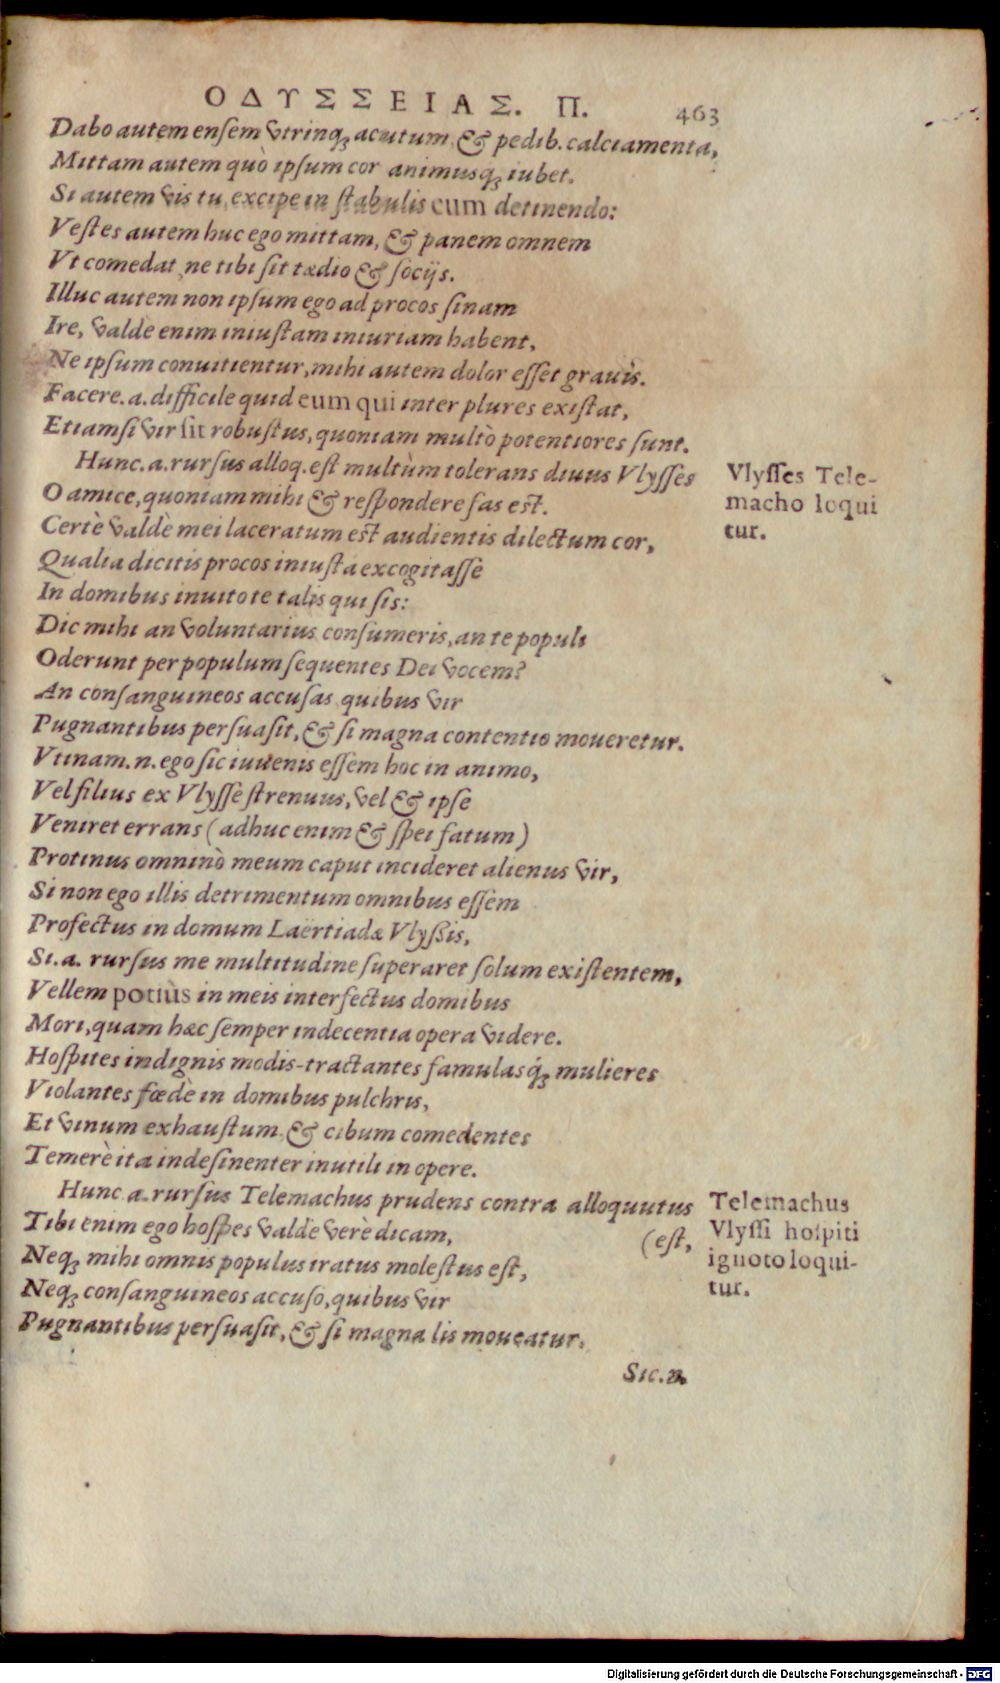 ΟΔΥΣΣΕΙΑΣ. Π. 463
Dabo autem ensem vtrinq; acutum, & pedib. calciamenta,
Mittam autem quò ipsum cor animusq; iubet.
Si autem vis tu, excipe in stabulis eum detinendo:
Vestes autem huc ego mittam, & panem omnem
Vt comedat, ne tibi sit tædio & socijs.
Illuc autem non ipsum ego ad procos sinam
Ire, valdè enim iniustam iniuriam habent,
Ne ipsum conuitientur, mihi autem dolor esset grauis.
Facere. a. difficile quid eum qui inter plures existat,
Etiamsi vir sit robustus, quoniam multò potentiores sunt.
Hunc. a. rursus alloq. est multùm tolerans diuus Vlysses
O amice, quoniam mihi & respondere fas est.
Certè valdè mei laceratum est audientis dilectum cor,
Qualia dicitis procos iniusta excogitasse
In domibus inuito te talis qui sis:
Dic mihi an voluntarius consumeris, an te populi
Oderunt per populum sequentes Dei vocem?
An consanguineos accusas quibus vir
Pugnantibus persuasit, & si magna contentio moueretur.
Vtinam. n. ego sic iuuenis essem hoc in animo,
Vel filius ex Vlysse strenuus, vel & ipse
Veniret errans (adhuc enim & spei fatum)
Protinus omninò meum caput incideret alienus vir,
Si non ego illis detrimentum omnibus essem
Profectus in domum Laërtiadæ Vlyßis,
Si. a. rursus me multitudine superaret solum existentem,
Vellem potiùs in meis interfectus domibus
Mori, quam hæc semper indecentia opera videre.
Hospites indignis modis-tractantes famulasq́; mulieres
Violantes fœdè in domibus pulchris,
Et vinum exhaustum, & cibum comedentes
Temerè ita indesinenter inutili in opere.
Hunc a. rursus Telemachus prudens contra alloquutus
(est,
Tibi enim ego hospes valde verè dicam,
Neq; mihi omnis populus iratus molestus est,
Neq; consanguineos accuso, quibus vir
Pugnantibus persuasit, & si magna lis moueatur.
Sic. n.
Vlysses Tele-
macho loqui
tur.
Telemachus
Vlyssi hospiti
ignoto loqui-
tur.
Digitalisierung gefördert durch die Deutsche Forschungsgemeinschaft - DFG